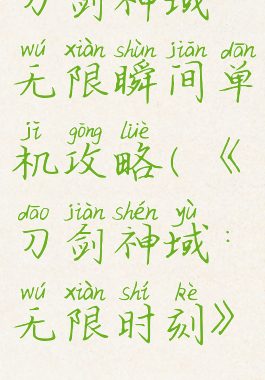 刀剑神域
wú xiàn shùn jiān dān
无限瞬间单
jī gōng lüè
机攻略(《
dāo jiàn shén yù
刀剑神域:
wú xiàn shí kè
无限时刻》